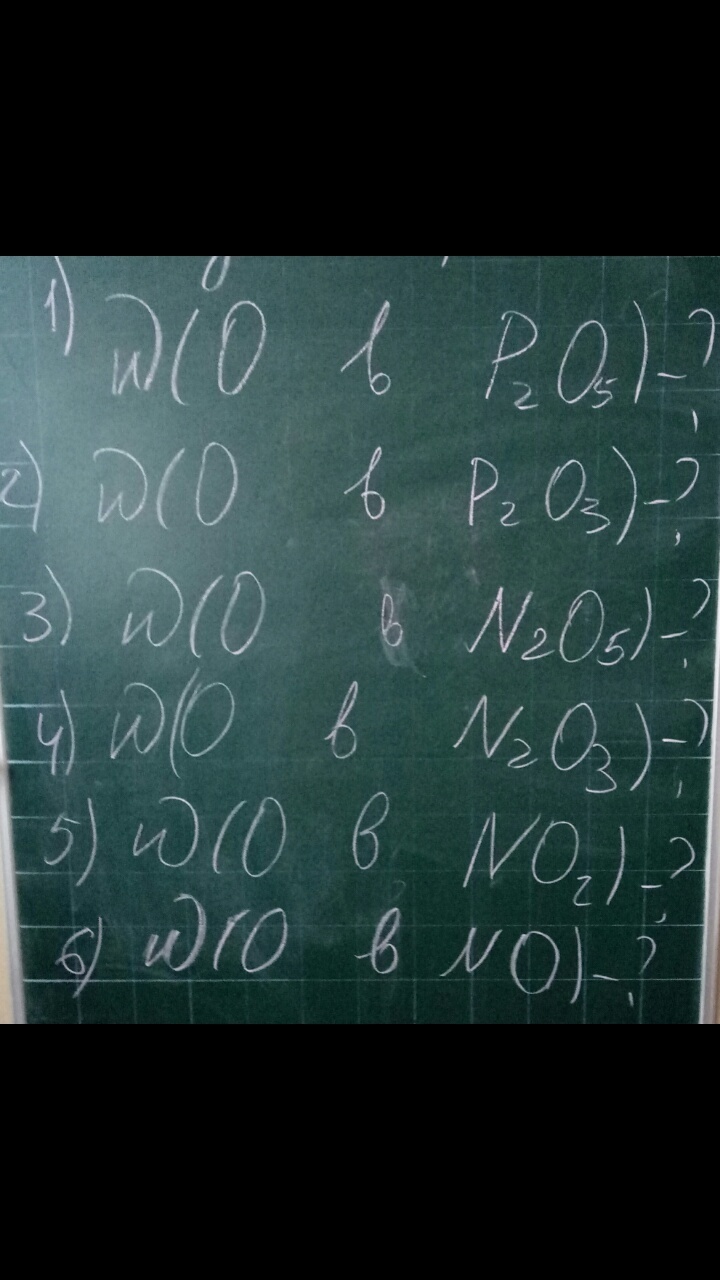 1) W(O в P₂O₅)-?
2) W(O в P₂O₃)-?
3) W(O в N₂O₅)-?
4) W(O в N₂O₃)-?
5) W(O в NO₂)-?
6) W(O в NO)-?